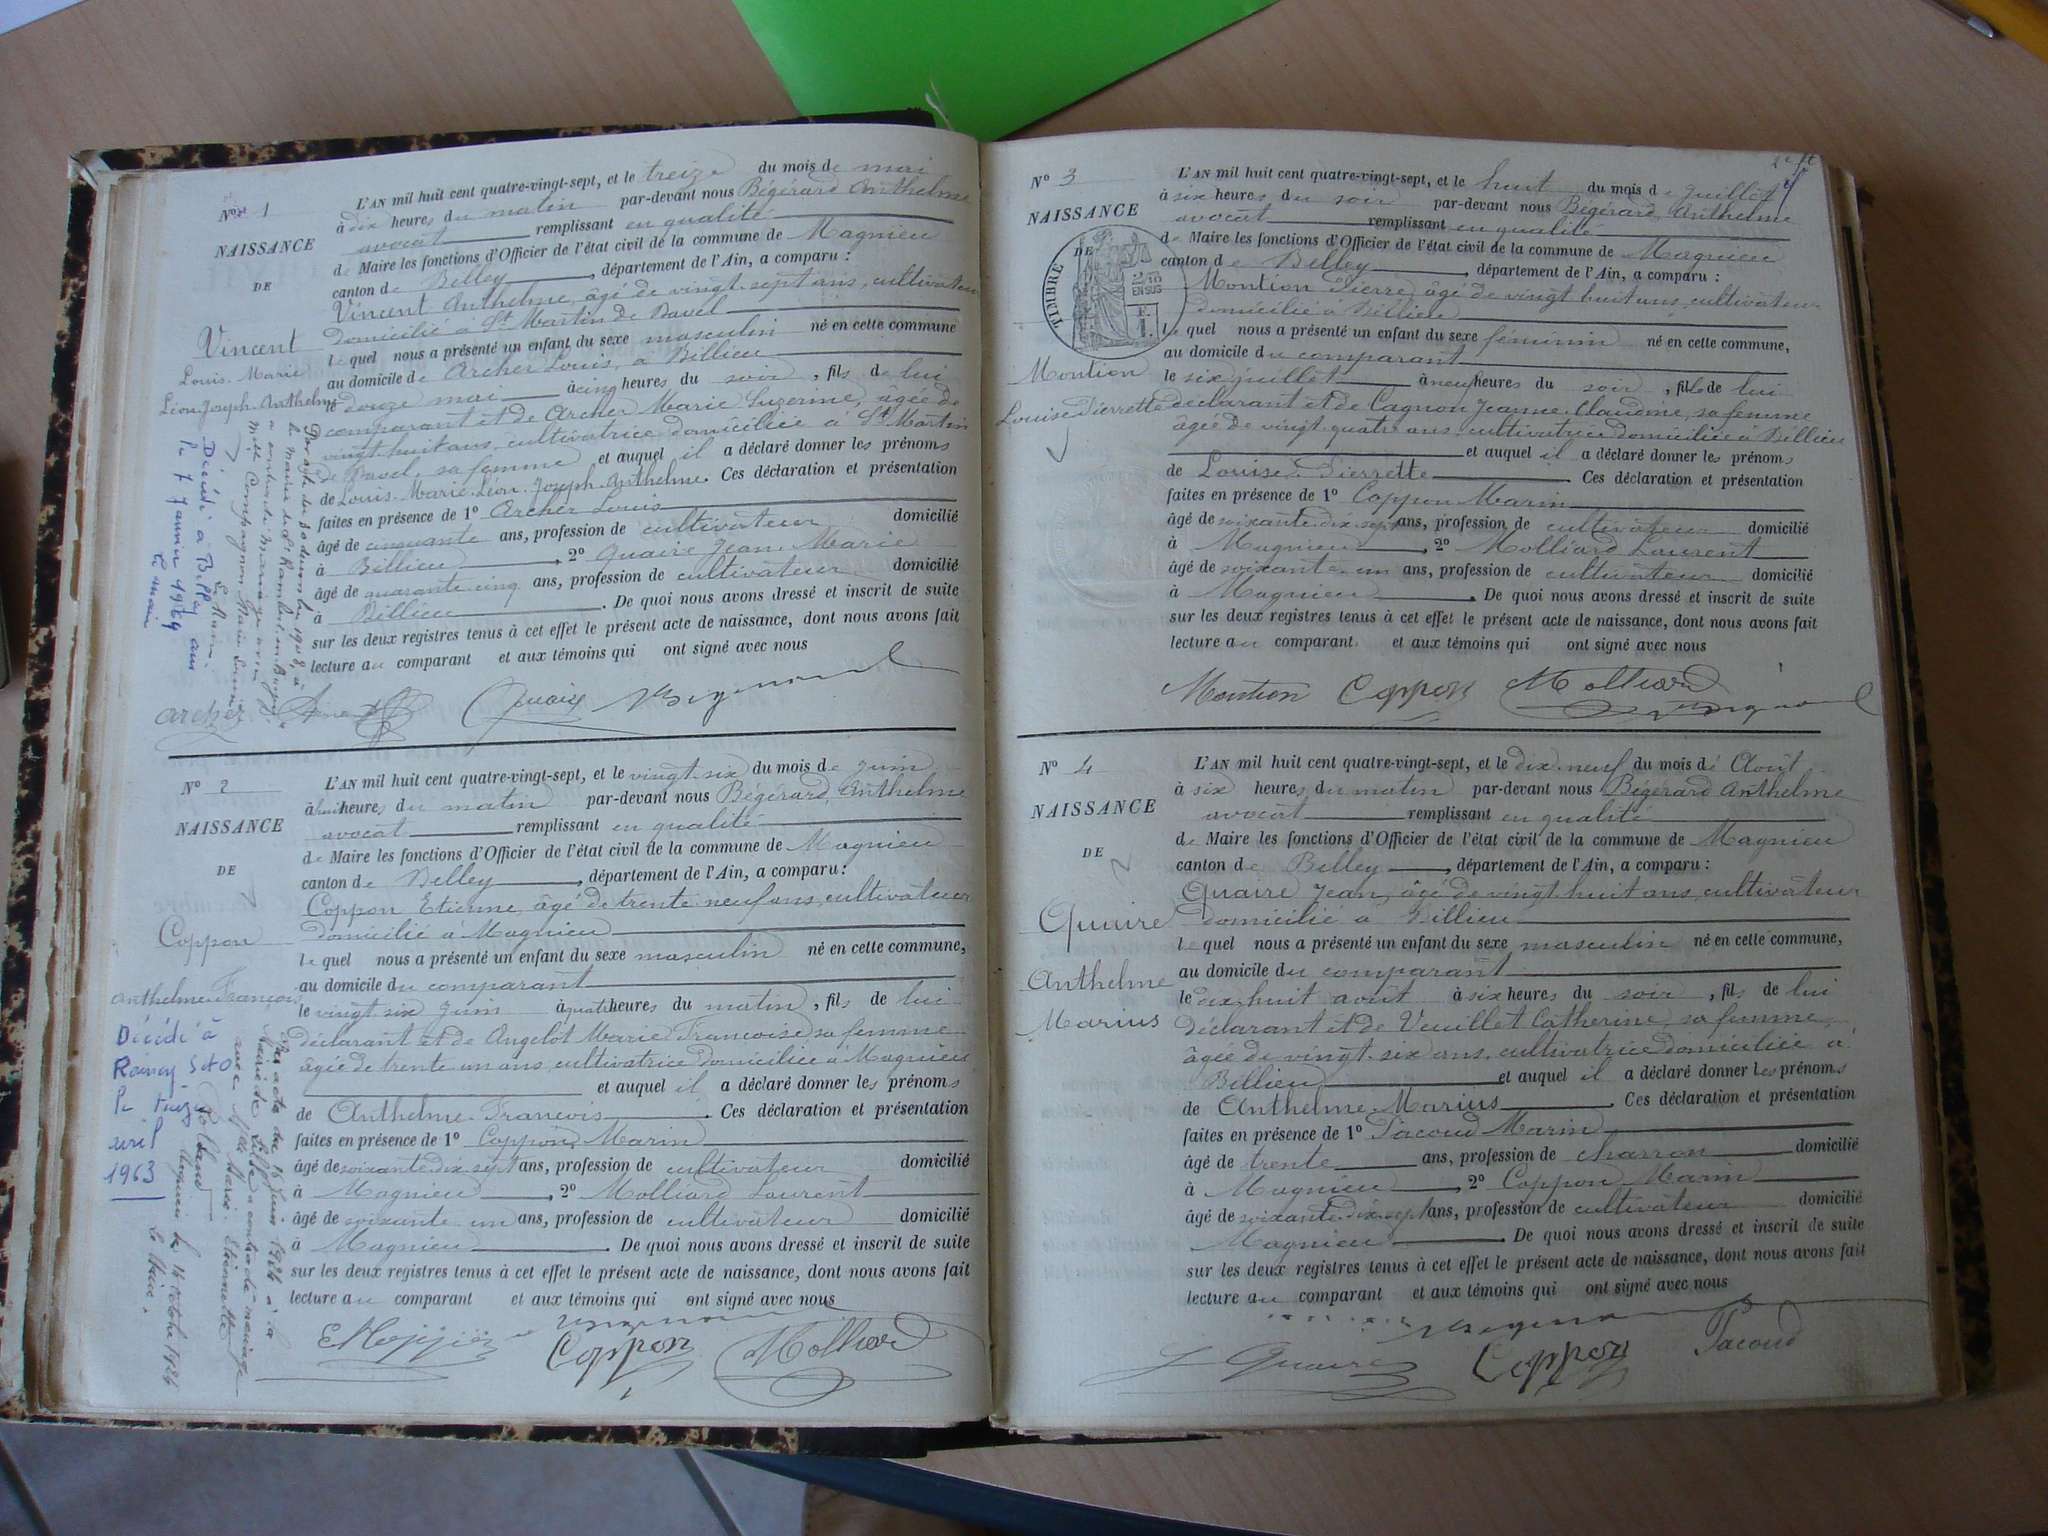 No 1
NAISSANCE
DE
Vincent
Louis-Marie
Léon-Joseph-Anthelme
L'AN mil huit cent quatre-vingt-sept, et le treize du mois de mai
à dix heures du matin par-devant nous Bégérard Anthelme
avocat remplissant en qualité
de Maire les fonctions d'Officier de l'état civil de la commune de Magnieu
canton de Belley, département de l'Ain, a comparu :
Vincent Anthelme, âgé de vingt-sept ans, cultivateur
domicilié à St Martin de Bavel
lequel nous a présenté un enfant du sexe masculin né en cette commune
au domicile de Archer Louis, à Billieu
le douze mai à cinq heures du soir, fils de lui
comparant et de Archer Marie Suzerine, âgée de
vingt huit ans, cultivatrice domiciliée à St Martin
de Bavel, sa femme et auquel il a déclaré donner les prénoms
de Louis-Marie-Léon-Joseph-Anthelme. Ces déclaration et présentation
faites en présence de 1º Archer Louis
âgé de cinquante ans, profession de cultivateur domicilié
à Billieu, 2º Quaire Jean-Marie
âgé de quarante cinq ans, profession de cultivateur domicilié
à Billieu. De quoi nous avons dressé et inscrit de suite
sur les deux registres tenus à cet effet le présent acte de naissance, dont nous avons fait
lecture au comparant et aux témoins qui ont signé avec nous
Le Maire
Décédé à Belley ain
le 7 janvier 1969
Le maire
Archer Quaire
No 2
NAISSANCE
DE
Coppon
Anthelme-François
L'AN mil huit cent quatre-vingt-sept, et le vingt-six du mois de juin
à heures du matin par-devant nous Bégérard Anthelme
avocat remplissant en qualité
de Maire les fonctions d'Officier de l'état civil de la commune de Magnieu
canton de Belley, département de l'Ain, a comparu :
Coppon Etienne, âgé de trente neuf ans, cultivateur
domicilié à Magnieu
lequel nous a présenté un enfant du sexe masculin né en cette commune,
au domicile du comparant
le vingt six juin à quatre heures du matin, fils de lui
déclarant et de Angelot Marie Françoise sa femme
âgée de trente un ans, cultivatrice domiciliée à Magnieu
et auquel il a déclaré donner les prénoms
de Anthelme-François. Ces déclaration et présentation
faites en présence de 1º Coppon Marin
âgé de soixante-dix-sept ans, profession de cultivateur domicilié
à Magnieu, 2º Molliard Laurent
âgé de soixante un ans, profession de cultivateur domicilié
à Magnieu. De quoi nous avons dressé et inscrit de suite
sur les deux registres tenus à cet effet le présent acte de naissance, dont nous avons fait
lecture au comparant et aux témoins qui ont signé avec nous
Décédé à
Raincy S&O
le treize
avril
1963
Coppon Molliard
No 3
NAISSANCE
DE
TIMBRE
Montion
Louise Pierrette
L'AN mil huit cent quatre-vingt-sept, et le huit du mois de Juillet
à six heures du soir par-devant nous Bégérard Anthelme
avocat remplissant en qualité
de Maire les fonctions d'Officier de l'état civil de la commune de Magnieu
canton de Belley, département de l'Ain, a comparu :
Montion Pierre, âgé de vingt huit ans, cultivateur
domicilié à Billieu
lequel nous a présenté un enfant du sexe féminin né en cette commune,
au domicile du comparant
le six juillet à neuf heures du soir, fille de lui
déclarant et de Cagnon Jeanne-Claudine, sa femme
âgée de vingt-quatre ans cultivatrice domiciliée à Billieu
et auquel il a déclaré donner les prénoms
de Louise-Pierrette. Ces déclaration et présentation
faites en présence de 1º Coppon Marin
âgé de soixante-dix-sept ans, profession de cultivateur domicilié
à Magnieu, 2º Molliard Laurent
âgé de soixante-un ans, profession de cultivateur domicilié
à Magnieu. De quoi nous avons dressé et inscrit de suite
sur les deux registres tenus à cet effet le présent acte de naissance, dont nous avons fait
lecture au comparant et aux témoins qui ont signé avec nous
Montion Coppon Molliard
No 4
NAISSANCE
DE
Quaire
Anthelme
Marius
L'AN mil huit cent quatre-vingt-sept, et le dix-neuf du mois de Août
à six heures du matin par-devant nous Bégérard Anthelme
avocat remplissant en qualité
de Maire les fonctions d'Officier de l'état civil de la commune de Magnieu
canton de Belley, département de l'Ain, a comparu :
Quaire Jean, âgé de vingt huit ans, cultivateur
domicilié à Billieu
lequel nous a présenté un enfant du sexe masculin né en cette commune,
au domicile du comparant
le dix-huit août à six heures du soir, fils de lui
déclarant et de Veuillet Catherine, sa femme,
âgée de vingt-six ans, cultivatrice domiciliée à
Billieu et auquel il a déclaré donner les prénoms
de Anthelme-Marius. Ces déclaration et présentation
faites en présence de 1º Pacoud Marin
âgé de trente ans, profession de charron domicilié
à Magnieu, 2º Coppon Marin
âgé de soixante-dix-sept ans, profession de cultivateur domicilié
Magnieu. De quoi nous avons dressé et inscrit de suite
sur les deux registres tenus à cet effet le présent acte de naissance, dont nous avons fait
lecture au comparant et aux témoins qui ont signé avec nous
J Quaire Coppon Pacoud